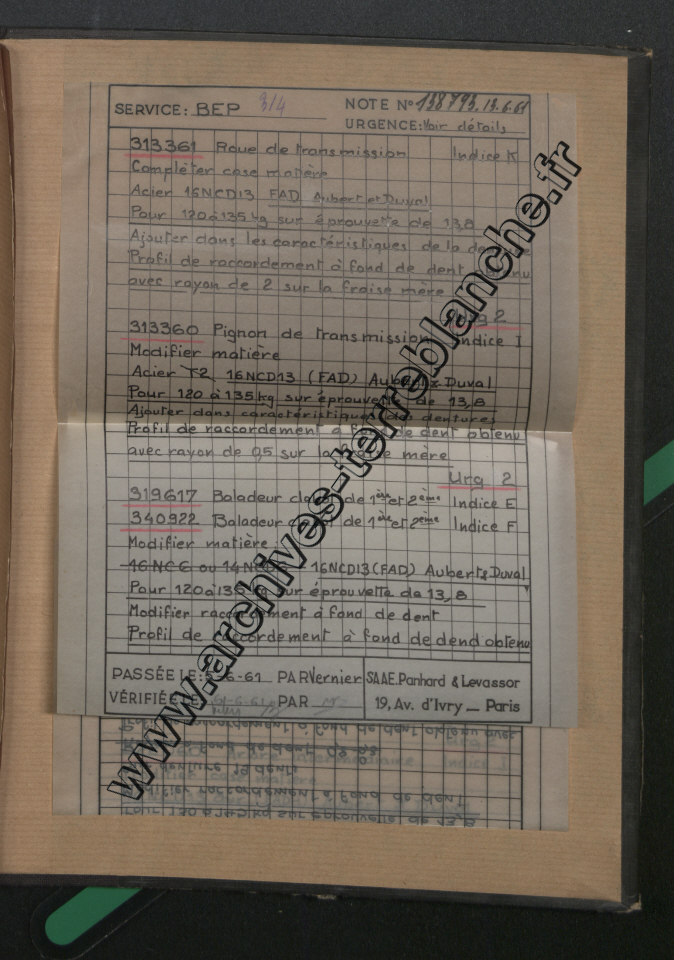 SERVICE: BEP 3/4
NOTE N° 138793.13.6.61
URGENCE: Voir détails
313361 Roue de transmission Indice K
Compléter case matière
Acier 16NCD13 FAD Aubert et Duval
Pour 120 à 135 kg sur éprouvette de 13,8
Ajouter dans les caractéristiques de la
Profil de raccordement à fond de dent obtenu
avec rayon de 2 sur la fraise mère
Urg 2
313360 Pignon de transmission Indice I
Modifier matière
Acier T2 16NCD13 (FAD) Aubert & Duval
Pour 120 à 135 kg sur éprouvette de 13,8
Ajouter dans caractéristiques des dentures
Profil de raccordement à fond de dent obtenu
avec rayon de 0,5 sur la fraise mère
Urg 2
319617 Baladeur de 1ère et 2ème Indice E
340922 Baladeur de 1ère et 2ème Indice F
Modifier matière:
16 NC 6 ou 14 16NCD13 (FAD) Aubert & Duval
Pour 120 à 135 kg sur éprouvette de 13,8
Modifier raccordement à fond de dent
Profil de raccordement à fond de dend obtenu
PASSÉE LE: -6-61 PAR Vernier
VÉRIFIÉE LE: -6-61 PAR
SAAE. Panhard & Levassor
19, Av. d'Ivry _ Paris
www.archives-terreblanche.fr
à fond de dent obtenu avec
fond de dent
denture 19 dents
Modifier raccordement à fond de dent
Pour 130 à 145 kg sur éprouvette de 13,8